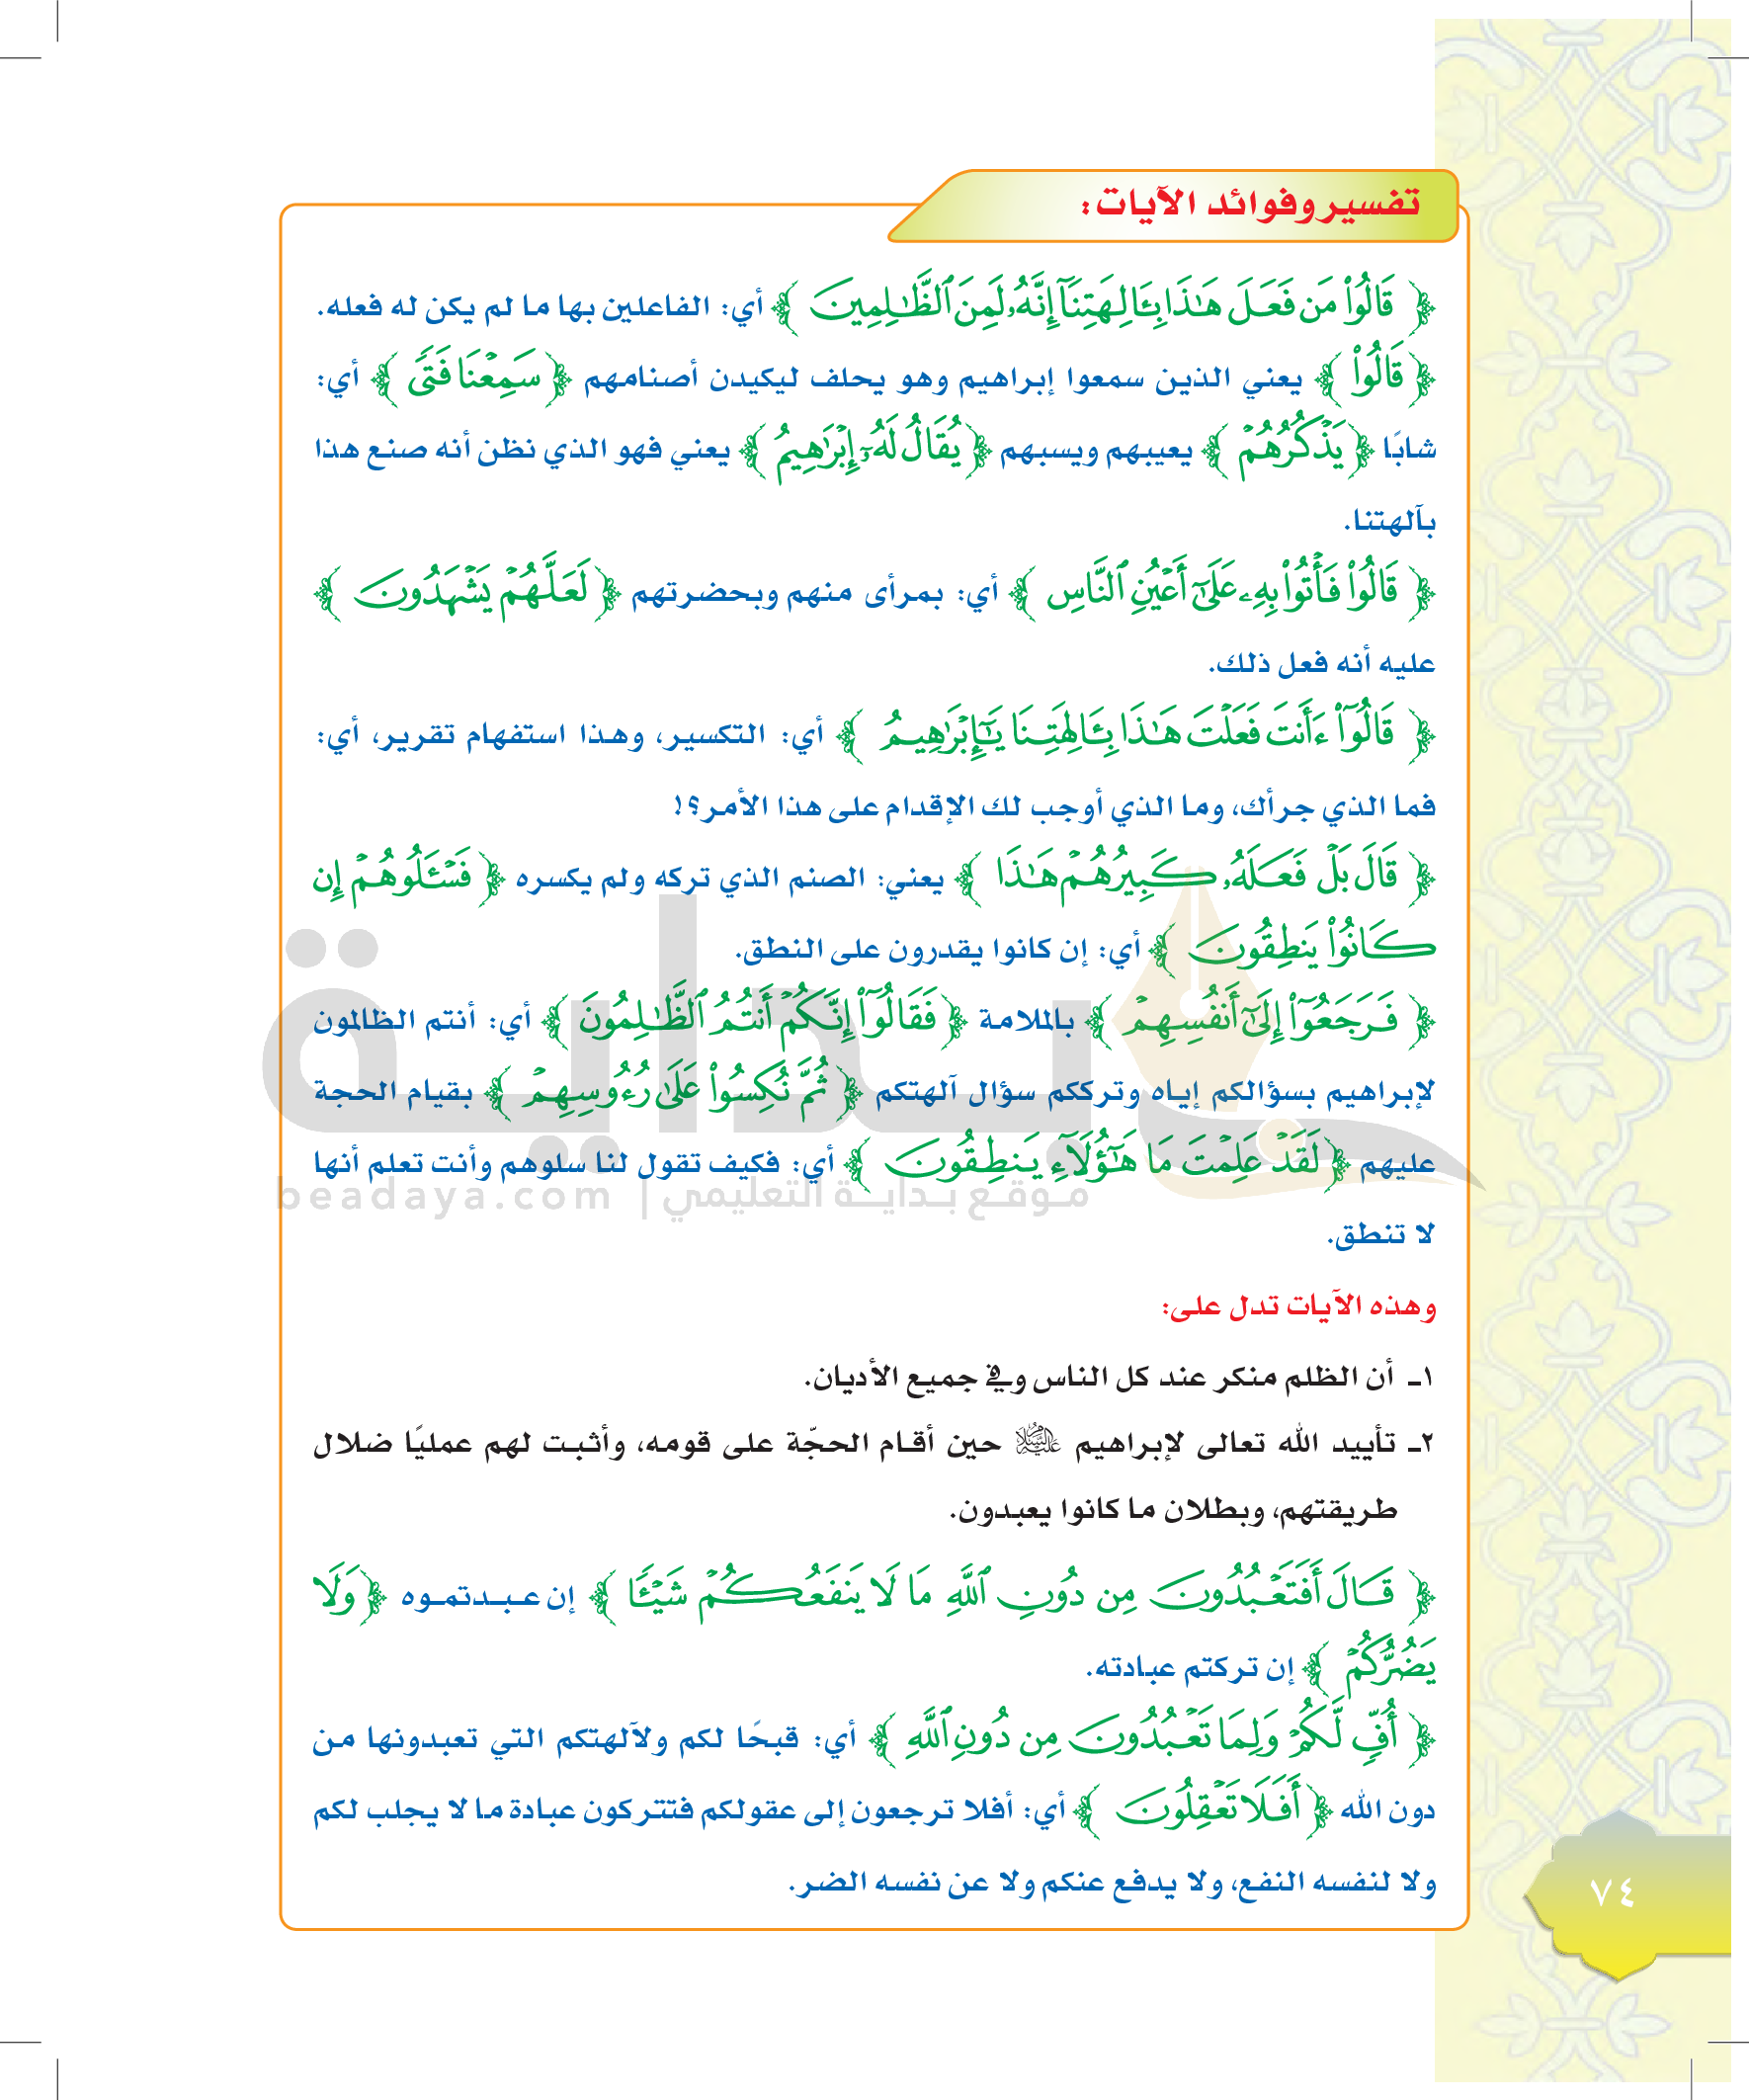 تفسير وفوائد الآيات:
﴿ قَالُوا۟ مَن فَعَلَ هَـٰذَا بِـَٔالِهَتِنَآ إِنَّهُۥ لَمِنَ ٱلظَّـٰلِمِينَ ﴾ أي: الفاعلين بها ما لم يكن له فعله.
﴿ قَالُوا۟ ﴾ يعني الذين سمعوا إبراهيم وهو يحلف ليكيدن أصنامهم ﴿ سَمِعْنَا فَتًى ﴾ أي:
شابًا ﴿ يَذْكُرُهُمْ ﴾ يعيبهم ويسبهم ﴿ يُقَالُ لَهُۥٓ إِبْرَٰهِيمُ ﴾ يعني فهو الذي نظن أنه صنع هذا
بآلهتنا.
﴿ قَالُوا۟ فَأْتُوا۟ بِهِۦ عَلَىٰٓ أَعْيُنِ ٱلنَّاسِ ﴾ أي: بمرأى منهم وبحضرتهم ﴿ لَعَلَّهُمْ يَشْهَدُونَ ﴾
عليه أنه فعل ذلك.
﴿ قَالُوٓا۟ ءَأَنتَ فَعَلْتَ هَـٰذَا بِـَٔالِهَتِنَا يَـٰٓإِبْرَٰهِيمُ ﴾ أي: التكسير، وهذا استفهام تقرير، أي:
فما الذي جرأك، وما الذي أوجب لك الإقدام على هذا الأمر؟!
﴿ قَالَ بَلْ فَعَلَهُۥ كَبِيرُهُمْ هَـٰذَا ﴾ يعني: الصنم الذي تركه ولم يكسره ﴿ فَسْـَٔلُوهُمْ إِن
كَانُوا۟ يَنطِقُونَ ﴾ أي: إن كانوا يقدرون على النطق.
﴿ فَرَجَعُوٓا۟ إِلَىٰٓ أَنفُسِهِمْ ﴾ بالملامة ﴿ فَقَالُوٓا۟ إِنَّكُمْ أَنتُمُ ٱلظَّـٰلِمُونَ ﴾ أي: أنتم الظالمون
لإبراهيم بسؤالكم إياه وترككم سؤال آلهتكم ﴿ ثُمَّ نُكِسُوا۟ عَلَىٰ رُءُوسِهِمْ ﴾ بقيام الحجة
عليهم ﴿ لَقَدْ عَلِمْتَ مَا هَـٰٓؤُلَآءِ يَنطِقُونَ ﴾ أي: فكيف تقول لنا سلوهم وأنت تعلم أنها
لا تنطق.
بداية
موقع بداية التعليمي | beadaya.com
وهذه الآيات تدل على:
١ـ أن الظلم منكر عند كل الناس وفي جميع الأديان.
٢ـ تأييد الله تعالى لإبراهيم عليه السلام حين أقام الحجّة على قومه، وأثبت لهم عمليًا ضلال
طريقتهم، وبطلان ما كانوا يعبدون.
﴿ قَالَ أَفَتَعْبُدُونَ مِن دُونِ ٱللَّهِ مَا لَا يَنفَعُكُمْ شَيْـًٔا ﴾ إن عبدتموه ﴿ وَلَا
يَضُرُّكُمْ ﴾ إن تركتم عبادته.
﴿ أُفٍّ لَّكُمْ وَلِمَا تَعْبُدُونَ مِن دُونِ ٱللَّهِ ﴾ أي: قبحًا لكم ولآلهتكم التي تعبدونها من
دون الله ﴿ أَفَلَا تَعْقِلُونَ ﴾ أي: أفلا ترجعون إلى عقولكم فتتركون عبادة ما لا يجلب لكم
ولا لنفسه النفع، ولا يدفع عنكم ولا عن نفسه الضر.
٧٤